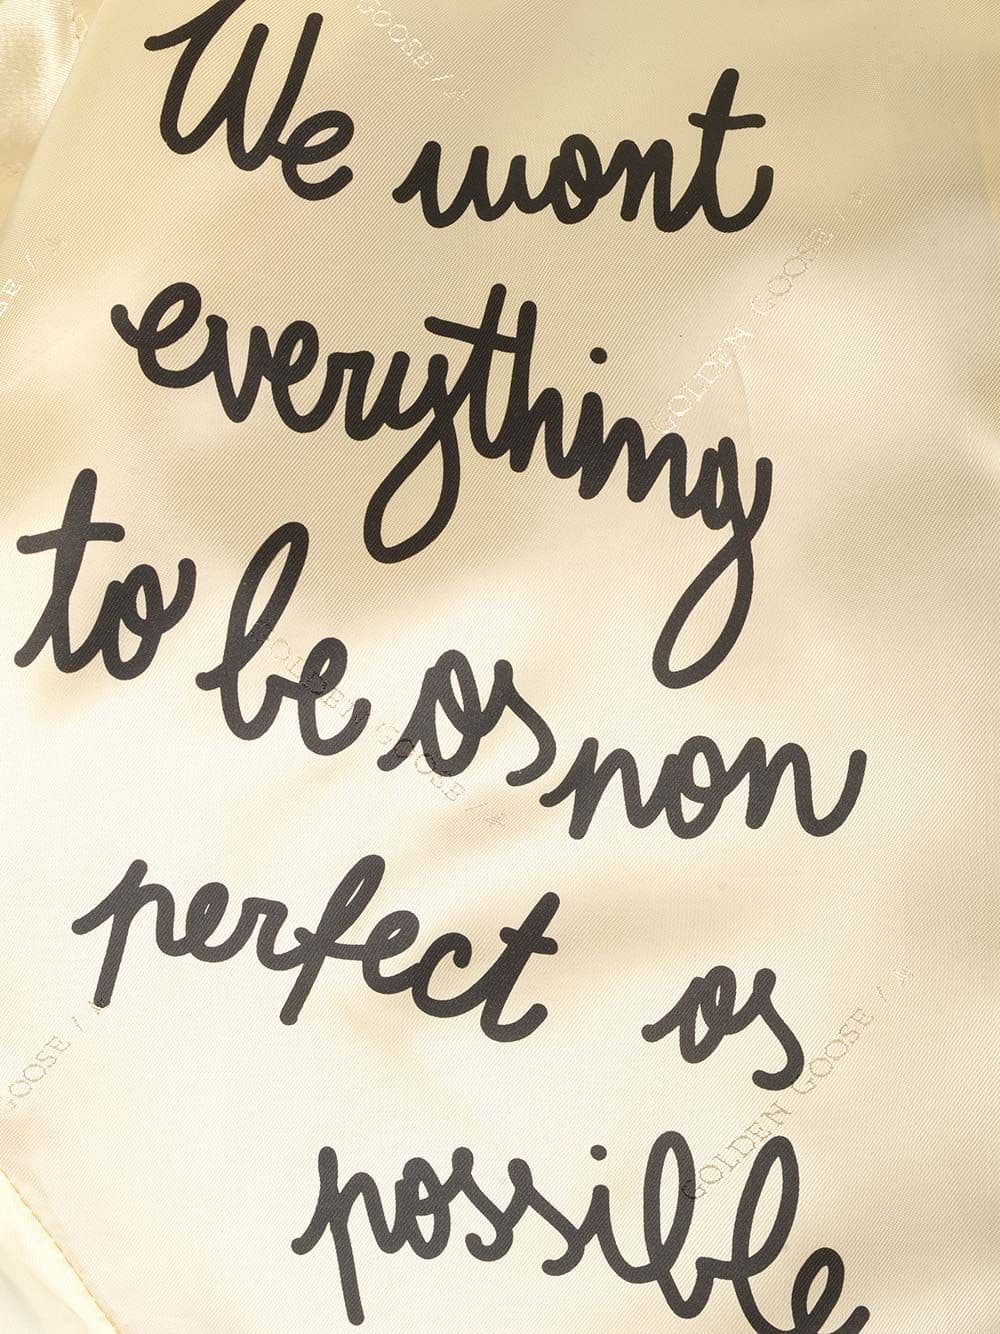 GOOSE / ☆
We want
GOLDEN GOOSE / ☆
everything
to be as non
GOLDEN GOOSE / ☆
perfect as
OOSE / ☆
GOLDEN GOOSE / ☆
possible